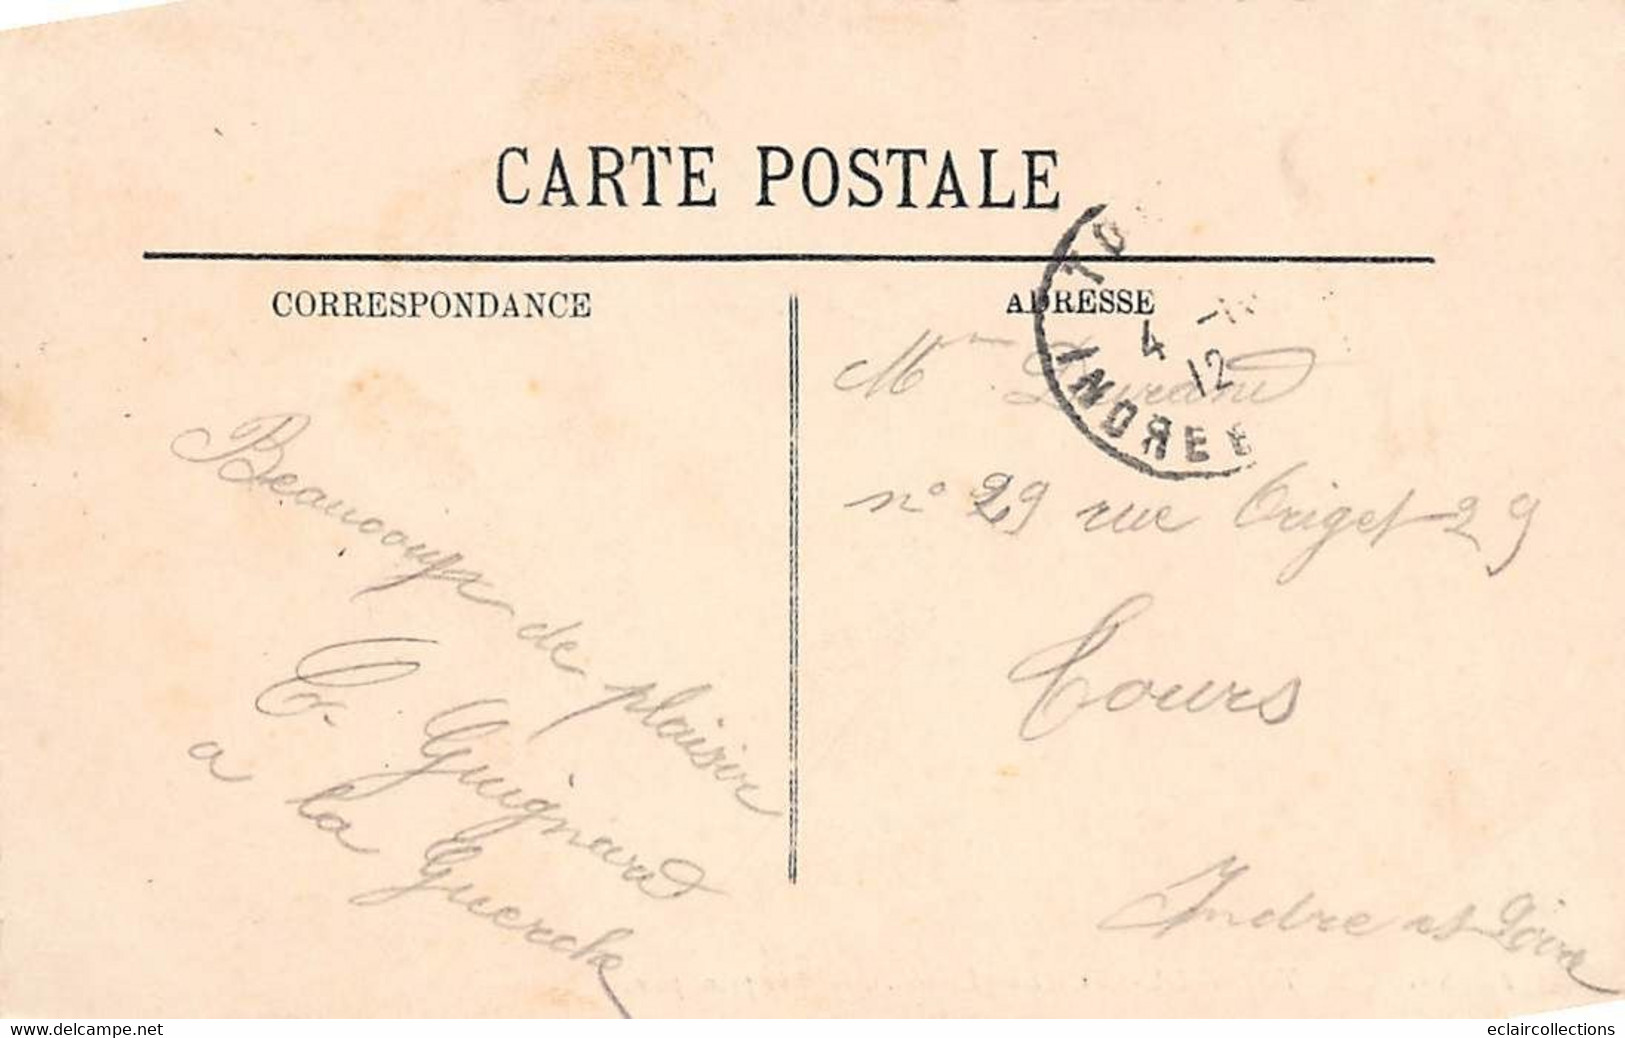 CARTE POSTALE
CORRESPONDANCE
ADRESSE
TO
4
12
INDRE E
Beaucoup de plaisir
Guignard
a la Guerche
Mme Durand
n° 29 rue Origet 29
Tours
Indre et Loire
eclaircollections